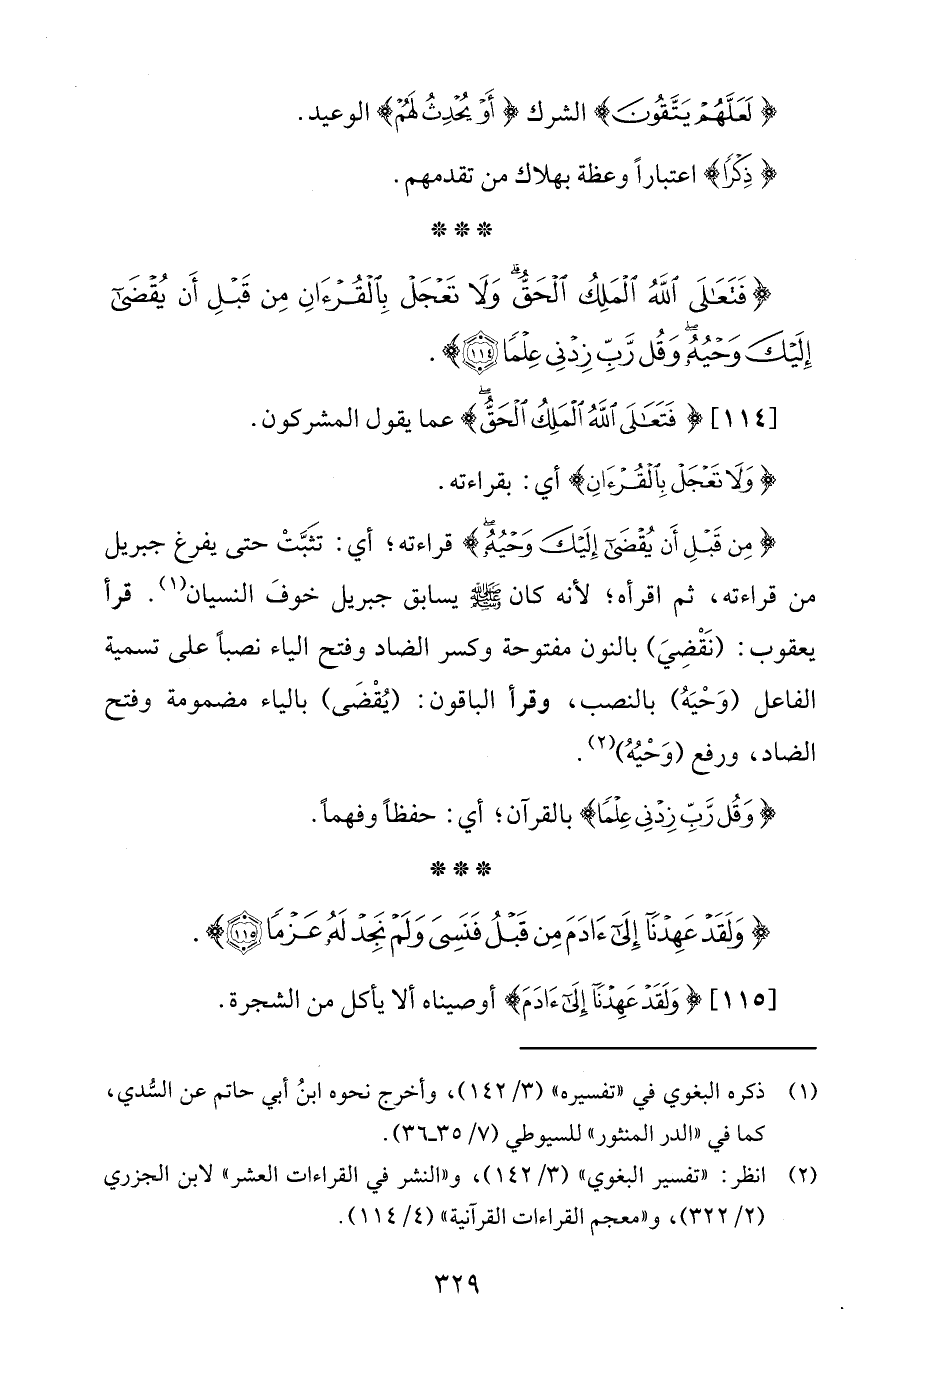 ﴿ لَعَلَّهُمْ يَتَّقُونَ﴾ الشرك ﴿ أَوْ يُحْدِثُ لَهُمْ﴾ الوعيد.
﴿ ذِكْرًا﴾ اعتباراً وعظة بهلاك من تقدمهم.
* * *
﴿فَتَعَٰلَى ٱللَّهُ ٱلْمَلِكُ ٱلْحَقُّۗ وَلَا تَعْجَلْ بِٱلْقُرْءَانِ مِن قَبْلِ أَن يُقْضَىٰٓ
إِلَيْكَ وَحْيُهُۥۖ وَقُل رَّبِّ زِدْنِى عِلْمًا ١١٤﴾.
[١١٤] ﴿ فَتَعَٰلَى ٱللَّهُ ٱلْمَلِكُ ٱلْحَقُّۖ﴾ عما يقول المشركون.
﴿ وَلَا تَعْجَلْ بِٱلْقُرْءَانِ﴾ أي: بقراءته.
﴿ مِن قَبْلِ أَن يُقْضَىٰٓ إِلَيْكَ وَحْيُهُۥۖ﴾ قراءته؛ أي: تثبَّتْ حتى يفرغ جبريل
من قراءته، ثم اقرأه؛ لأنه كان ﷺ يسابق جبريل خوفَ النسيان(١). قرأ
يعقوب: (نَقْضِيَ) بالنون مفتوحة وكسر الضاد وفتح الياء نصباً على تسمية
الفاعل (وَحْيَهُ) بالنصب، وقرأ الباقون: (يُقْضَى) بالياء مضمومة وفتح
الضاد، ورفع (وَحْيُهُ)(٢).
﴿ وَقُل رَّبِّ زِدْنِى عِلْمًا﴾ بالقرآن؛ أي: حفظاً وفهماً.
* * *
﴿ وَلَقَدْ عَهِدْنَآ إِلَىٰٓ ءَادَمَ مِن قَبْلُ فَنَسِىَ وَلَمْ نَجِدْ لَهُۥ عَزْمًا ١١٥﴾.
[١١٥] ﴿ وَلَقَدْ عَهِدْنَآ إِلَىٰٓ ءَادَمَ﴾ أوصيناه ألا يأكل من الشجرة.
(١) ذكره البغوي في «تفسيره» (٣/ ١٤٢)، وأخرج نحوه ابنُ أبي حاتم عن السُّدي،
كما في «الدر المنثور» للسيوطي (٧/ ٣٥ـ٣٦).
(٢) انظر: «تفسير البغوي» (٣/ ١٤٢)، و«النشر في القراءات العشر» لابن الجزري
(٢/ ٣٢٢)، و«معجم القراءات القرآنية» (٤/ ١١٤).
٣٢٩